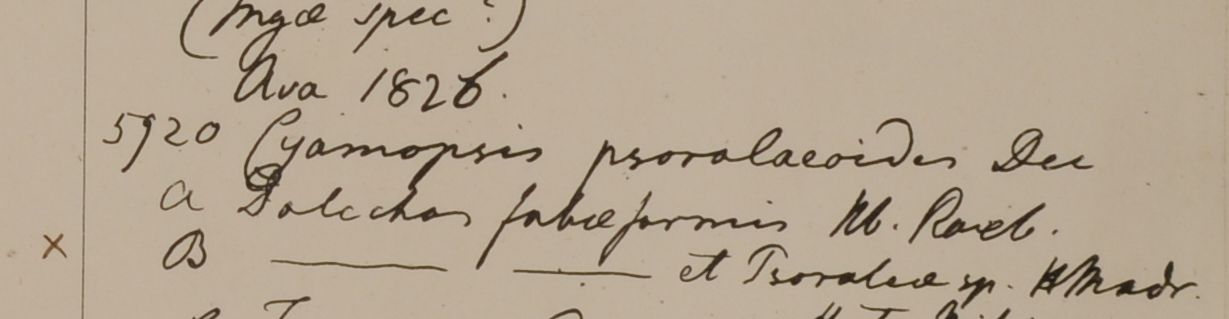 (Inga spec:)
Ava 1826.
5920 Cyamopsis psoralaeoides Dec
a Dolichos fabaeformis Hb. Roxb.
B ——— ——— et Psoraleæ sp. H Madr.